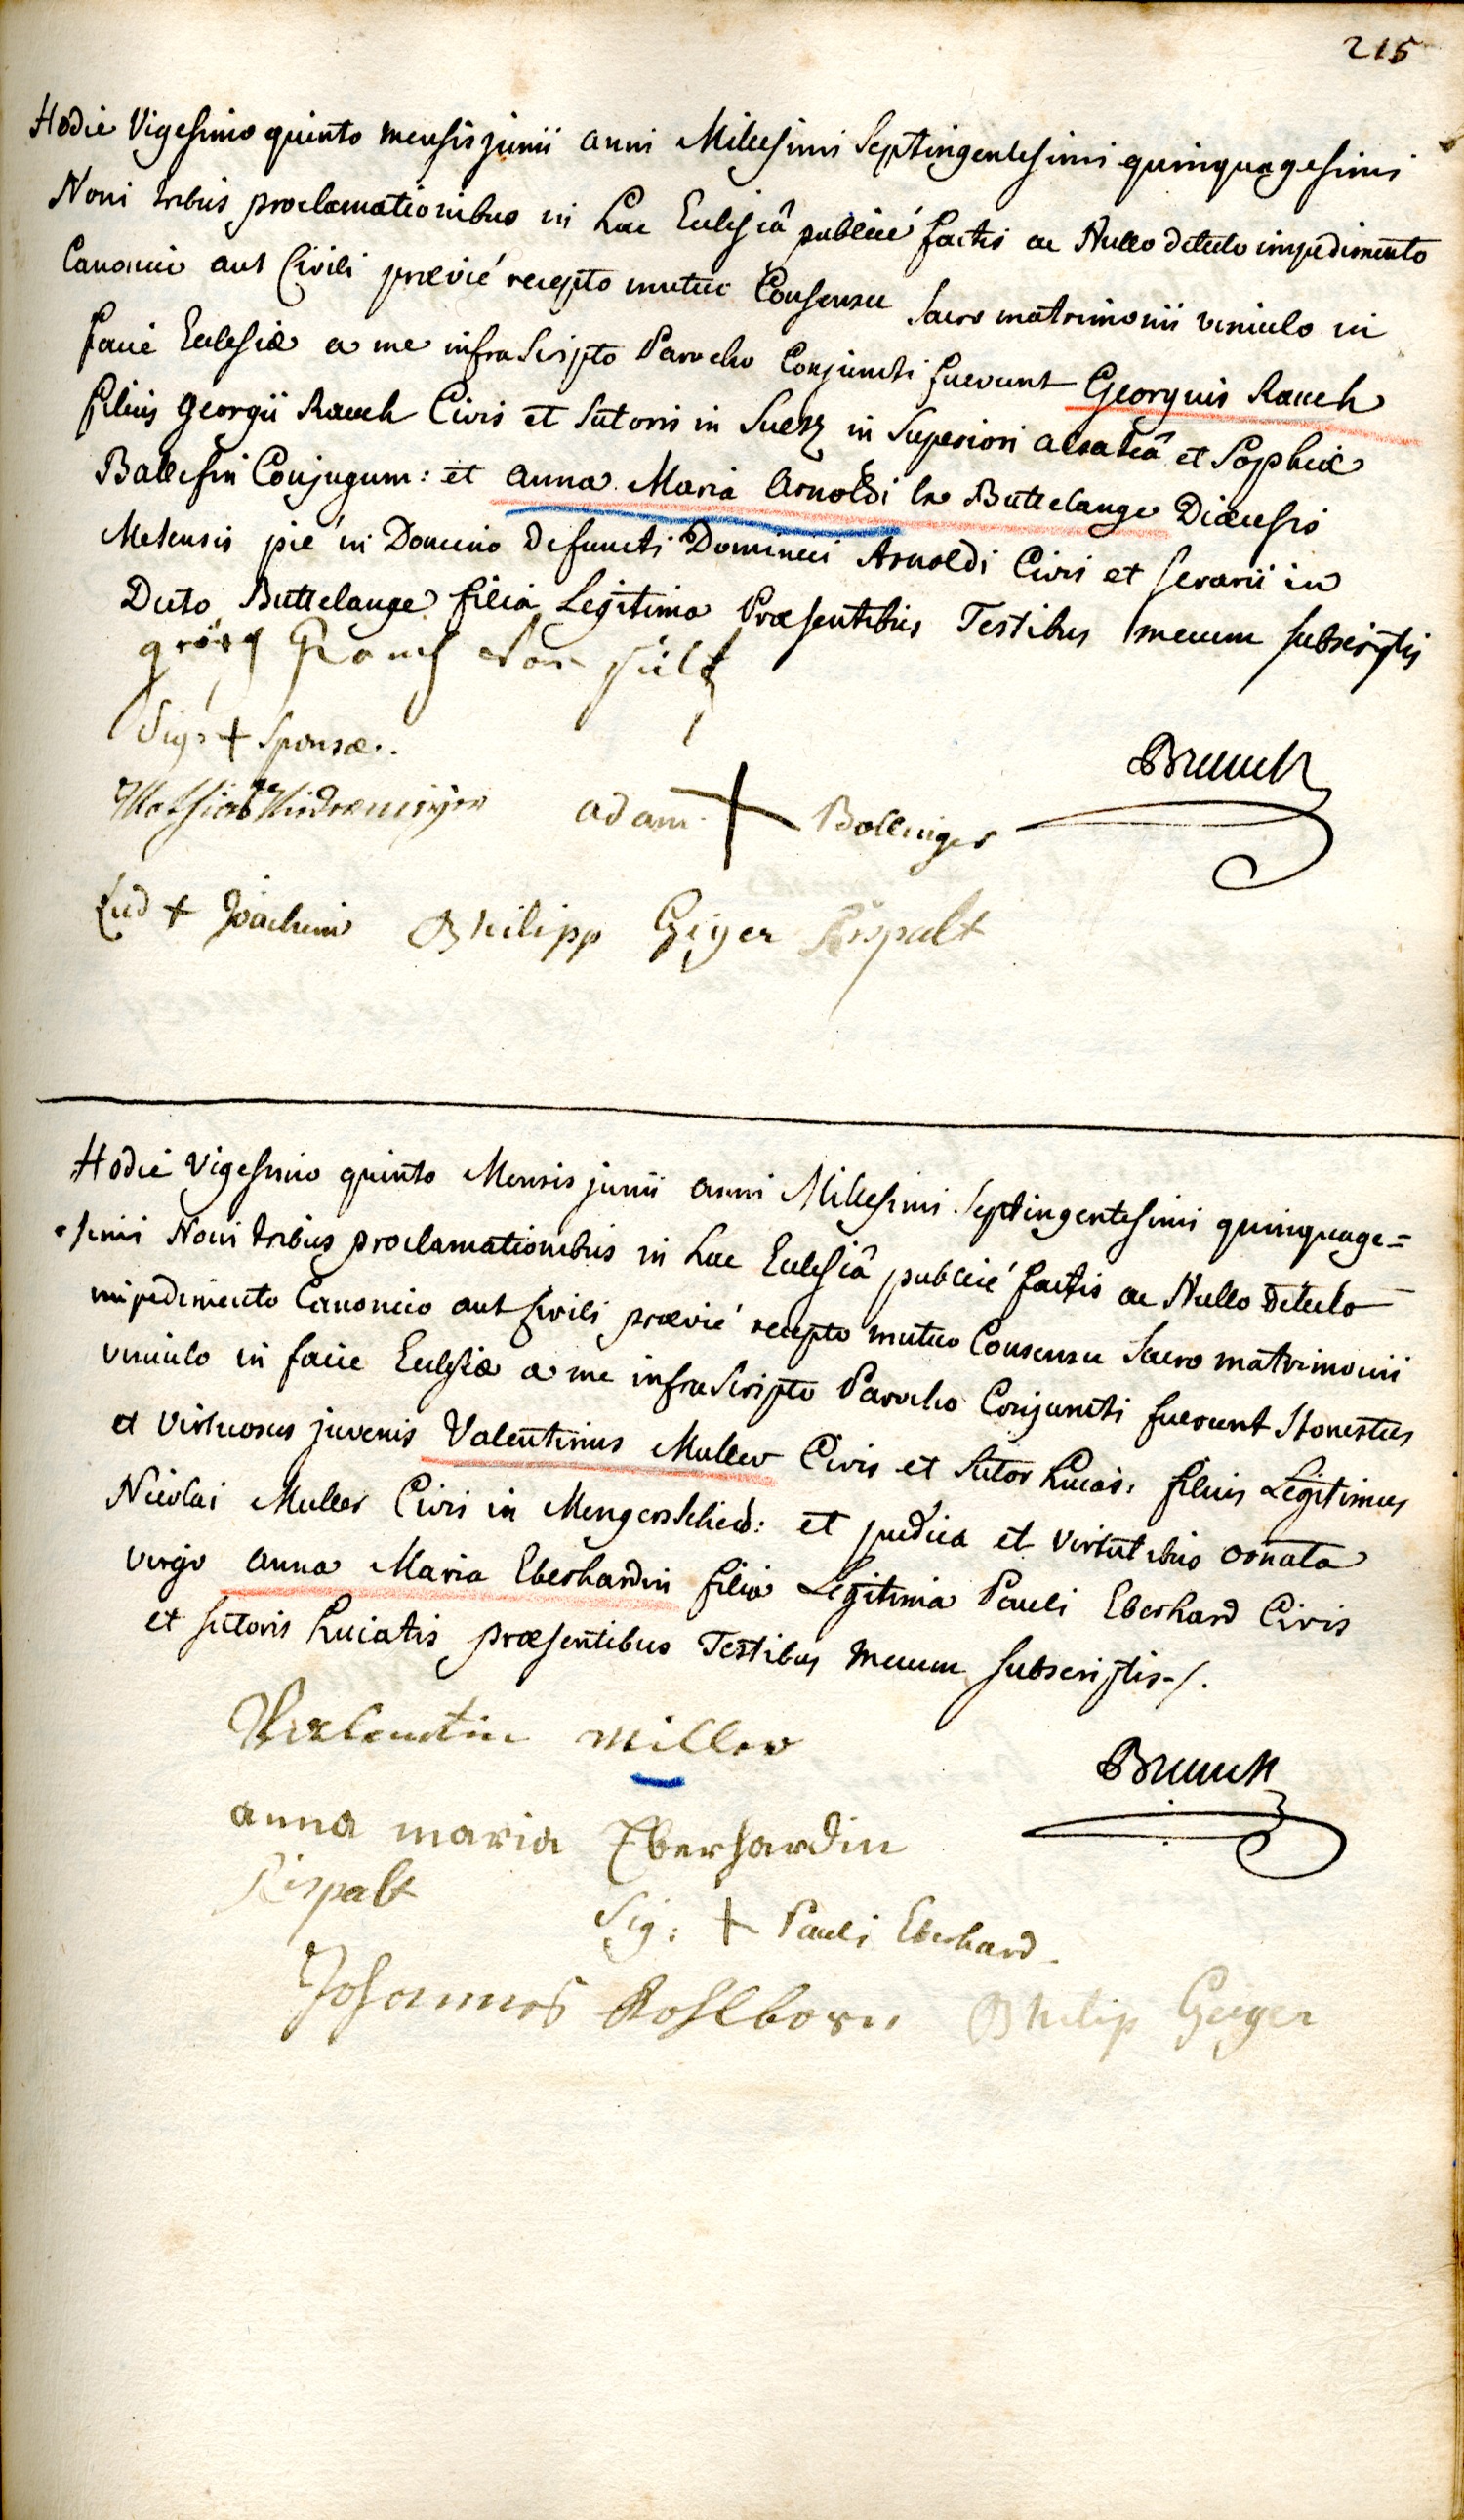 215
Hodie Vigesimo quinto mensis junii anni Millesimi Septingentesimi quinquagesimi
Noni tribus proclamationibus in hac Eclesiâ publicé factis ac Nullo detecto impedimento
Canonico aut Civili prævié recepto mutuo Consensu Sacro matrimonii vinculo in
facie Eclesiæ a me infra Scripto Parocho Conjuncti fuerunt Georgius Rauch
filius georgii Rauch Civis et Sutoris in Sultz in Superiori alsatiâ et Sophiæ
Ballesin Conjugum: et anna Maria Arnoldi ex Buttelange Diœcesis
Metensis pié in Domino defuncti Dominici Arnoldi Civis et serarii in
Dicto Buttelange filia Legitima Præsentibus Testibus mecum subscriptis
görg Rauch von sultz
Sig: + Sponsæ.
Brunck
Mathias adam + Bollinger
Lud + Joachim Philipp Giger Rispalt
Hodie Vigesimo quinto Mensis junii anni Millesimi Septingentesimi quinquage=
=simi Noni tribus proclamationibus in hac Eclesiâ publicé factis ac Nullo detecto
impedimento Canonico aut Civili prævié recepto mutuo Consensu Sacro matrimonii
vinculo in facie Eclesiæ a me infra Scripto Parocho Conjuncti fuerunt Honestus
et Virtuosus juvenis Valentinus Muller Civis et Sutor hucas, filius Legitimus
Nicolai Muller Civis in Mengerschied: et pudica et Virtutibus ornata
virgo anna Maria Eberhardin filia Legitima Pauli Eberhard Civis
et sutoris huiatis præsentibus Testibus Mecum subscriptis-/.
Valentin Miller
Brunck
anna maria Eberhardin
Rispalt
Sig: + Pauli Eberhard.
Johannes Kohlborn Philip Geiger